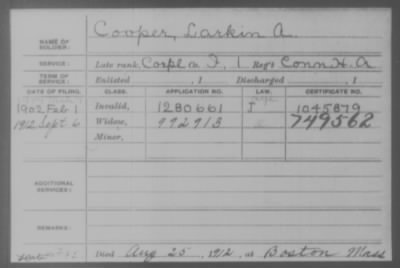 NAME OF SOLDIER: Cooper, Larkin A.
SERVICE: Late rank, Corpl Co. I, 1 Reg't Conn H. A.
TERM OF SERVICE: Enlisted , 1 Discharged , 1
DATE OF FILING. CLASS. APPLICATION NO. LAW. CERTIFICATE NO.
1902 Feb 1 Invalid, 1280661 J 1045879
1912 Sept 6 Widow, 992913 749562
Minor,
ADDITIONAL SERVICES:
REMARKS:
Died Aug 25, 1912, at Boston Mass